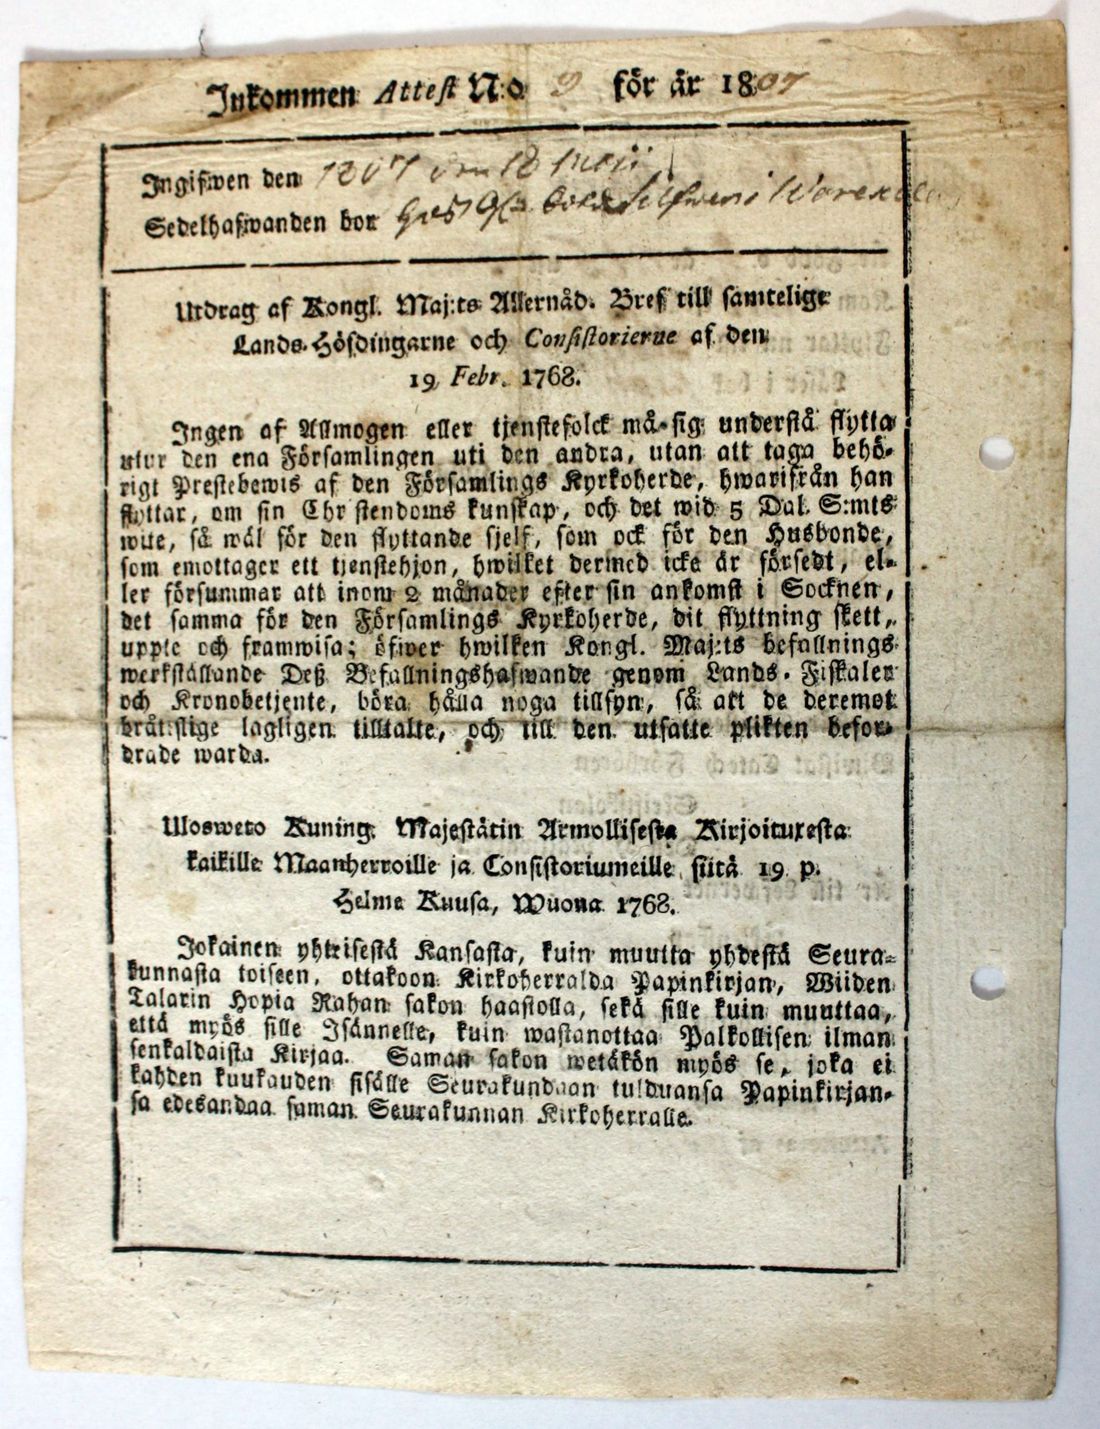 Inkommen Attest N:o 9 för år 1807
Ingifwen den 1807 den 18 Maii
Sedelhafwanden bor hos
Utdrag af Kongl. Maj:ts Allernåd. Bref till samtelige
Lands-Höfdingarne och Consistorierne af den
19 Febr. 1768.
Ingen af Allmogen eller tjenstefolck må sig understå flytta
utur den ena Församlingen uti den andra, utan att taga behö-
rigt Prestebewis af den Församlings Kyrkoherde, hwarifrån han
flyttar, om sin Christendoms kunskap, och det wid 5 Dal. S:mts
wite, så wäl för den flyttande sjelf, som ock för den Husbonde,
som emottager ett tjenstehjon, hwilket dermed icke är försedt, el-
ler försummar att inom 2 månader efter sin ankomst i Socknen,
det samma för den Församlings Kyrkoherde, dit flyttning skett,
uppte och framwisa; öfwer hwilken Kongl. Maj:ts befallnings
werkställande Deß Befallningshafwande genom Lands-Fiskaler
och Kronobetjente, böra hålla noga tillsyn, så att de deremot
bråtslige lagligen tilltalte, och till den utsatte plikten befor-
drade warda.
Ulosweto Kuning. Majestätin Armollisesta Kirjoituxesta
kaikille Maanherroille ja Consistoriumeille, siitä 19 p.
Helme Kuusa, Wuona 1768.
Jokainen yhteisestä Kansasta, kuin muutta yhdestä Seura-
kunnasta toiseen, ottakoon Kirkoherralda Papinkirjan, Wiiden
Talarin Hopia Rahan sakon haastolla, sekä sille kuin muuttaa,
että myös sille Isännelle, kuin wastanottaa Palkollisen ilman
senkaldaista Kirjaa. Saman sakon wetäkön myös se, joka ei
kahden kuukauden sisälle Seurakundaan tulduansa Papinkirjan-
sa edesandaa saman Seurakunnan Kirkoherralle.